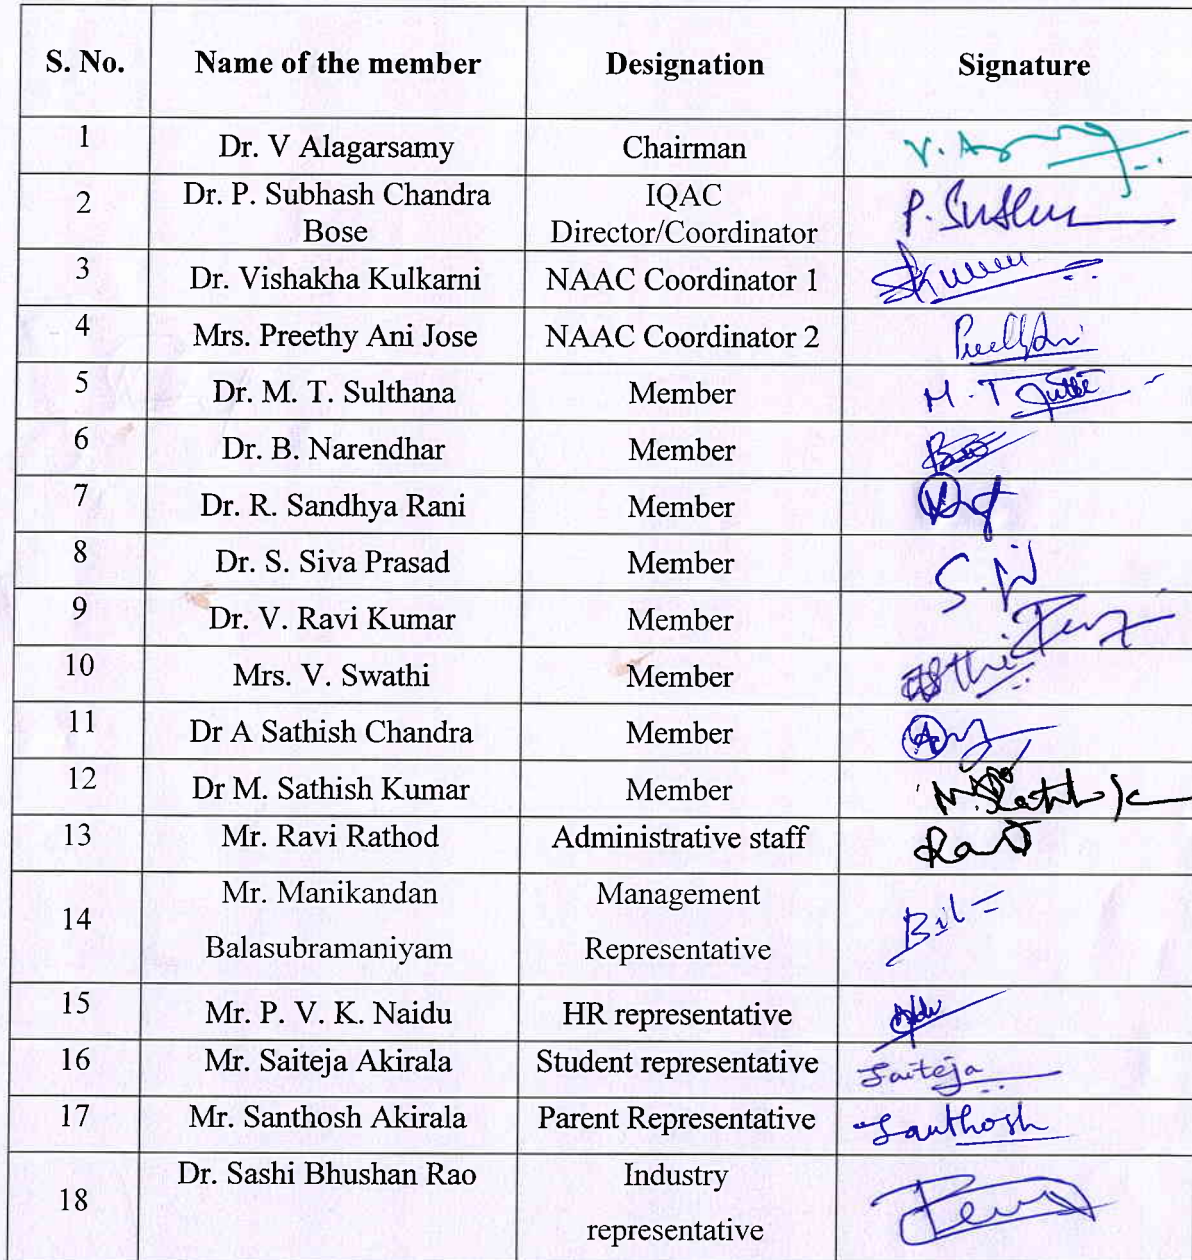 S. No. Name of the member Designation Signature
1 Dr. V Alagarsamy Chairman
2 Dr. P. Subhash Chandra IQAC
Bose Director/Coordinator
3 Dr. Vishakha Kulkarni NAAC Coordinator 1
4 Mrs. Preethy Ani Jose NAAC Coordinator 2
5 Dr. M. T. Sulthana Member M. T
6 Dr. B. Narendhar Member
7 Dr. R. Sandhya Rani Member
8 Dr. S. Siva Prasad Member
9 Dr. V. Ravi Kumar Member
10 Mrs. V. Swathi Member
11 Dr A Sathish Chandra Member
12 Dr M. Sathish Kumar Member
13 Mr. Ravi Rathod Administrative staff
Mr. Manikandan Management
14
Balasubramaniyam Representative
15 Mr. P. V. K. Naidu HR representative
16 Mr. Saiteja Akirala Student representative Saiteja
17 Mr. Santhosh Akirala Parent Representative Santhosh
Dr. Sashi Bhushan Rao Industry
18
representative